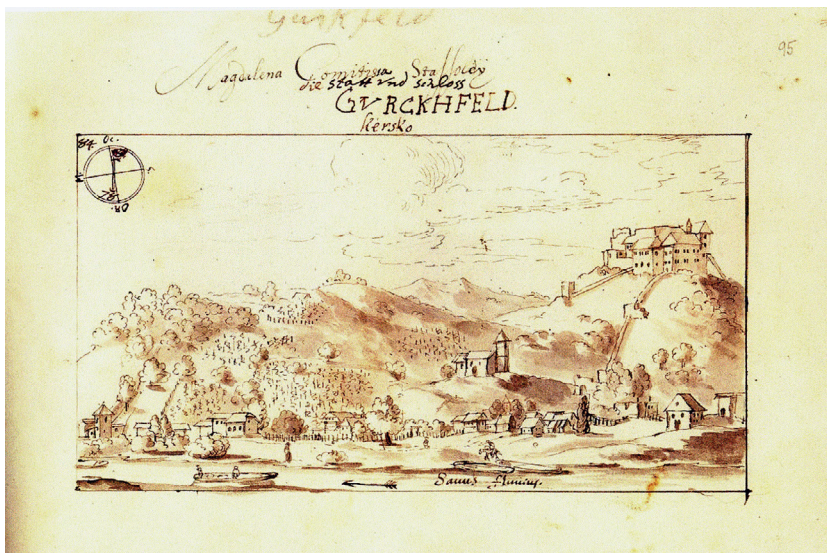 Gurkfeld
95
Magdalena Comitissa
die Statt vnd Schloss
GVRCKHFELD.
Kersko
84. Oc.
Sauus fluuius.